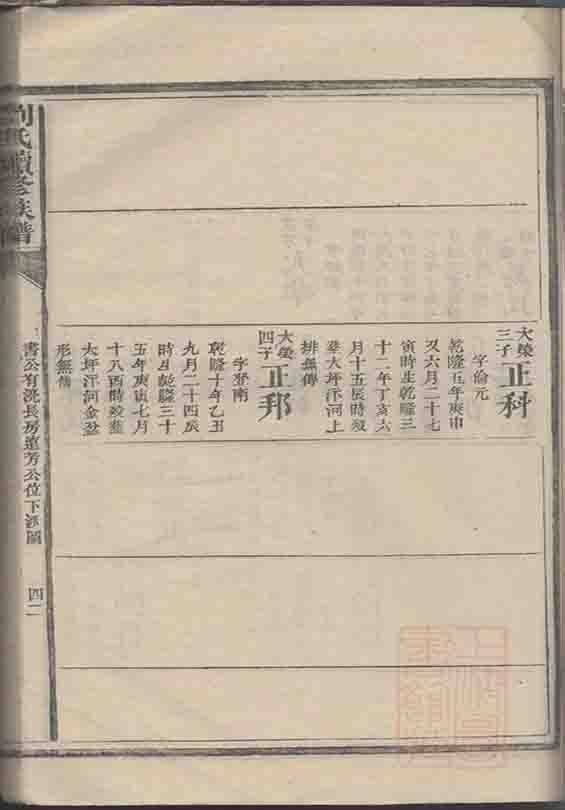 大榮三子 正科
字倫元
乾隆五年庚申
又六月二十七
寅時生乾隆三
十二年丁亥六
月十五辰時歿
葬大坪汗河上
排無傳
大榮四子 正邦
字登南
乾隆十年乙丑
九月二十四辰
時生乾隆三十
五年庚寅七月
十八酉時歿葬
大坪汗河金盆
形無傳
劉氏續修族譜
書公有洸長房進芳公位下
四二